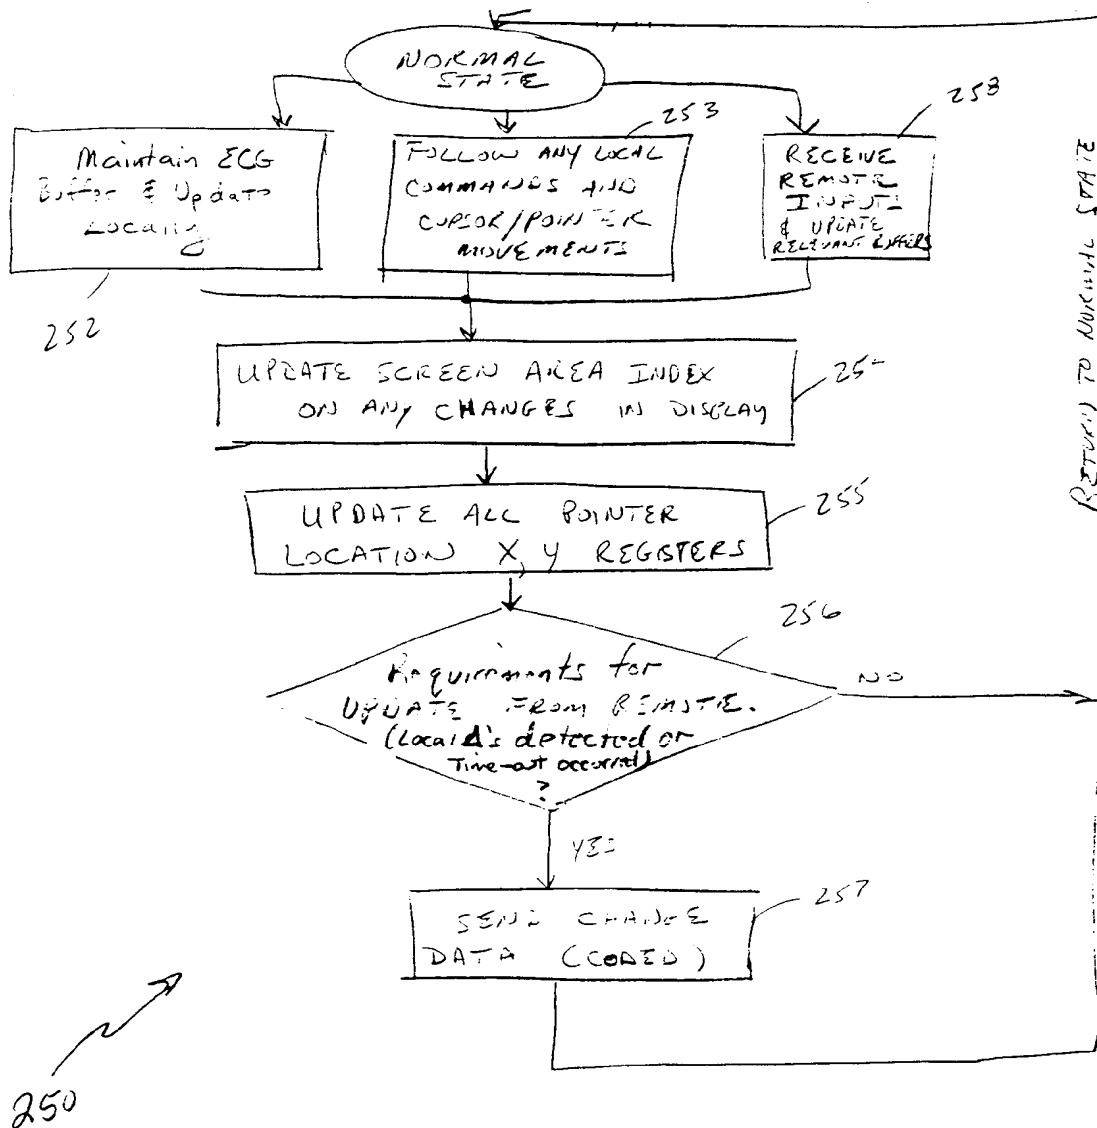 NORMAL
STATE
253
258
Maintain ECG
Buffer & Update
Locally
FOLLOW ANY LOCAL
COMMANDS AND
CURSOR/POINTER
MOVEMENTS
RECEIVE
REMOTE
INPUTS
& UPDATE
RELEVANT BUFFERS
252
RETURN TO NORMAL STATE
UPDATE SCREEN AREA INDEX
ON ANY CHANGES IN DISPLAY
25
UPDATE ALL POINTER
LOCATION X, Y REGISTERS
255
256
Requirements for
UPDATE FROM REMOTE.
(Local Δ's detected or
Time-out occurred)
?
NO
YES
SEND CHANGE
DATA (CODED)
257
250